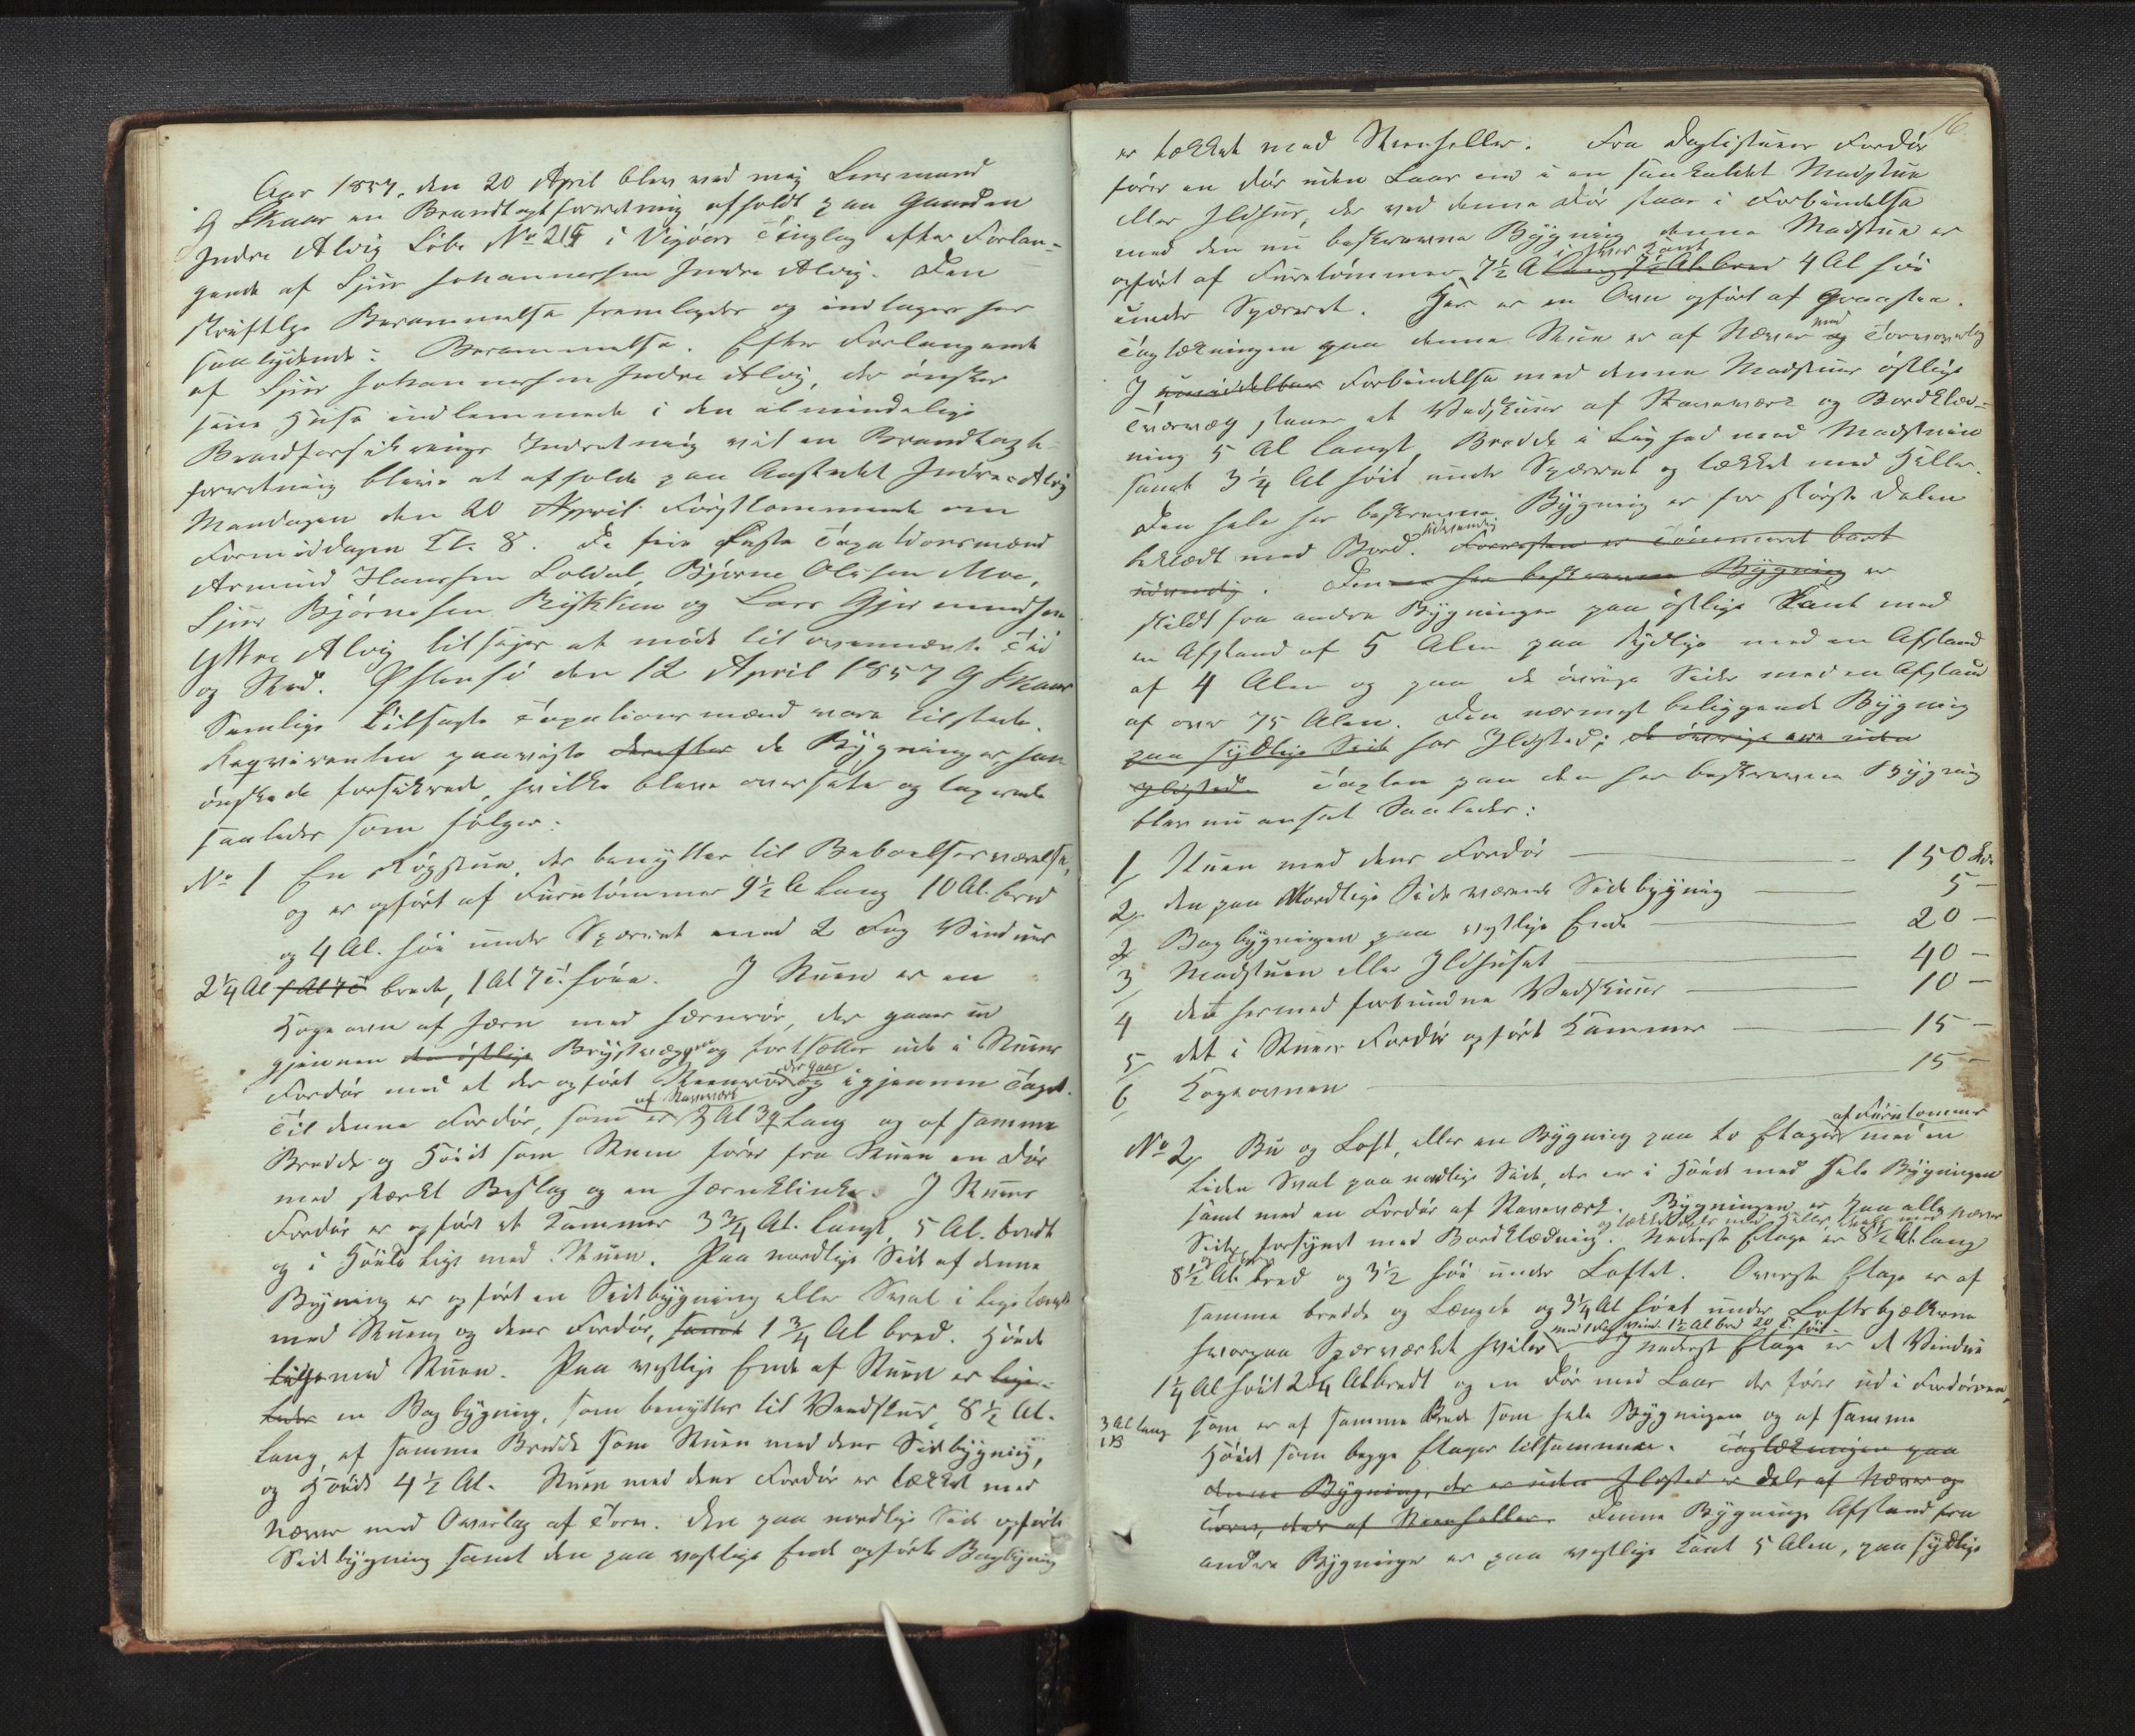 Aar 1857, den 20 April blev ved mig Lensmand
G Skaar en Brandtaxtforretning afholdt paa Gaarden
Indre Alvig Löbe No 215 i Vigöers Tinglag efter Forlan-
gende af Sjur Johannessen Indre Alvig. Den
skriftlige Berammelse fremlagdes og indtages her
saalydende: Berammelse. Efter Forlangende
af Sjur Johannessen Indre Alvig, der önsker
sine Huse indlemmede i den almindelige
Brandforsikrings Indretning vil en Brandtaxt-
forretning blive at afholde paa Aastedet Indre-Alvig
Mandagen den 20 April förstkommende om
Formiddagen Kl. 8. De fire faste Taxationsmænd
Armund Hanssen Soldal, Björne Olsen Moe,
Sjur Björnesen Rykken og Lars Gjermundsen
Yttre Alvig tilsiges at möde til ovennævnte Tid
og Sted. Östensö den 12 April 1857 G Skaar
Samtlige tilsagte Taxationsmænd vare tilstede.
Reqvirenten paaviste derefter de Bygninger, han
önskede forsikrede, hvilke bleve overseete og taxerede
saaledes som fölger:
No 1 En Rögstue, der benyttes til Beboelsesværelse,
og er opfört af Furutömmer 9½ Al lang 10 Al. bred
og 4 Al. höi under Sperret med 2 Fag Vinduer
2¼ Al 1 Al 7 T brede, 1 Al 7 T. höie. I Stuen er en
Kogeovn af Jern med Jernrör, der gaaer ud
gjennem den östlige Brystvæggen og fortsættes ude i Stuens
Fordör med et der opfört Steenrör der gaar og igjennem Taget.
Til denne Fordör, som er af Stavværk 3 Al 3 q lang og af samme
Bredde og Höide som Stuen förer fra Stuen en Dör
med stærkt Beslag og en Jernklinke. I Stuens
Fordör er opfört et Kammer 3¾ Al. langt, 5 Al. bredt
og i Höide ligt med Stuen. Paa nordlige Side af denne
Bygning er opfört en Sidebygning eller Sval i lige længde
med Stuen og dens Fordör, samt 1¾ Al bred. Höide
lige med Stuen. Paa vestlige Ende af Stuen er lige-
ledes en Bagbygning, som benyttes til Vedskur, 8½ Al.
lang, af samme Bredde som Stuen med dens Sidebygning,
og Höide 4½ Al. Stuen med dens Fordör er tækket med
Næver med Overlag af Torv. Den paa nordlige Side opförte
Sidebygning samt den paa vestlige Ende opförte Bagbygning
16.
er tækket med Steenheller. Fra Daglistuens Fordör
förer en Dör uden Laas ind i en saakaldet Madstue
eller Ildhus, der ved denne Dör staar i Forbindelse
med den nu beskrevne Bygning denne Madstue er
opfört af Furetömmer 7½ Al i hver Kant lang 7½ Al. bred 4 Al höi
under Sperret. Her er en Ovn opfört af Graasten.
Tagtækningen paa denne Stue er af Næver med og Torvoverlag
I umiddelbar Forbindelse med denne Madstues östlige
Tværvæg staaer et Vedskuur af Stavværk og Bordklæd-
ning 5 Al langt, Bredde i Lighed med Madstuen
samt 3¼ Al höit under Sperret og tækket med Heller.
Den hele her beskrevne Bygning er for störste Delen
beklædt med Bord udvendig. Forresten er Tömmeret bart
udvendig. Denne her beskrevne Bygning er
skildt fra andre Bygninger paa östlige Kant med
en Afstand af 5 Alen paa sydlige med en Afstand
af 4 Alen og paa de övrige Sider med en Afstand
af over 75 Alen. Den nærmest beliggende Bygning
paa sydlige Side har Ildsted; de övrige ere uden
Ildsted. Taxten paa den her beskrevne Bygning
blev nu ansat Saaledes:
1, Stuen med dens Fordör 150 Sp.
2, den paa Nordlige Side værende Sidebygning 5 -
2 Bagbygningen paa vestlige Ende 20 -
3, Madstuen eller Ildhuset 40 -
4 det hermed forbundne Vedskuur 10 -
5, det i Stuens Fordör opförte Kammer 15 -
6, Kogeovnen 15 -
No 2, Bu og Loft, eller en Bygning paa to Etager af Furutömmer med en
liden Sval paa nordlige Side, der er i Höide med hele Bygningen
samt med en Fordör af Stavværk. Bygningen er paa alle
Sider forsynet med Bordklædning og tækket dels med Heller, deels med næver. Nederste Etage er 8½ Al lang
8½ Al. bred og 3½ höi under Loftet. Överste Etage er af
samme bredde og Længde og 3¼ Al höiet under Loftsbjelkerne
hvorpaa Sperværket hviler med 1 Fag Vind. 1½ Al bred 20 T. höit. I nederste Etage er et Vindue
1¼ Al höit 2¼ Al bredt og en Dör med Laas der förer ud i Fordören,
3 Al lang
som er af samme Brede som hele Bygningen og af samme
Höide som begge Etager tilsammen. Tagtækningen paa
denne Bygning, der er uden Ildsted er dels af Næver og
Torv, dels af Steenheller. Denne Bygnings Afstand fra
andre Bygninger er paa vestlige Kant 5 Alen, paa sydlige